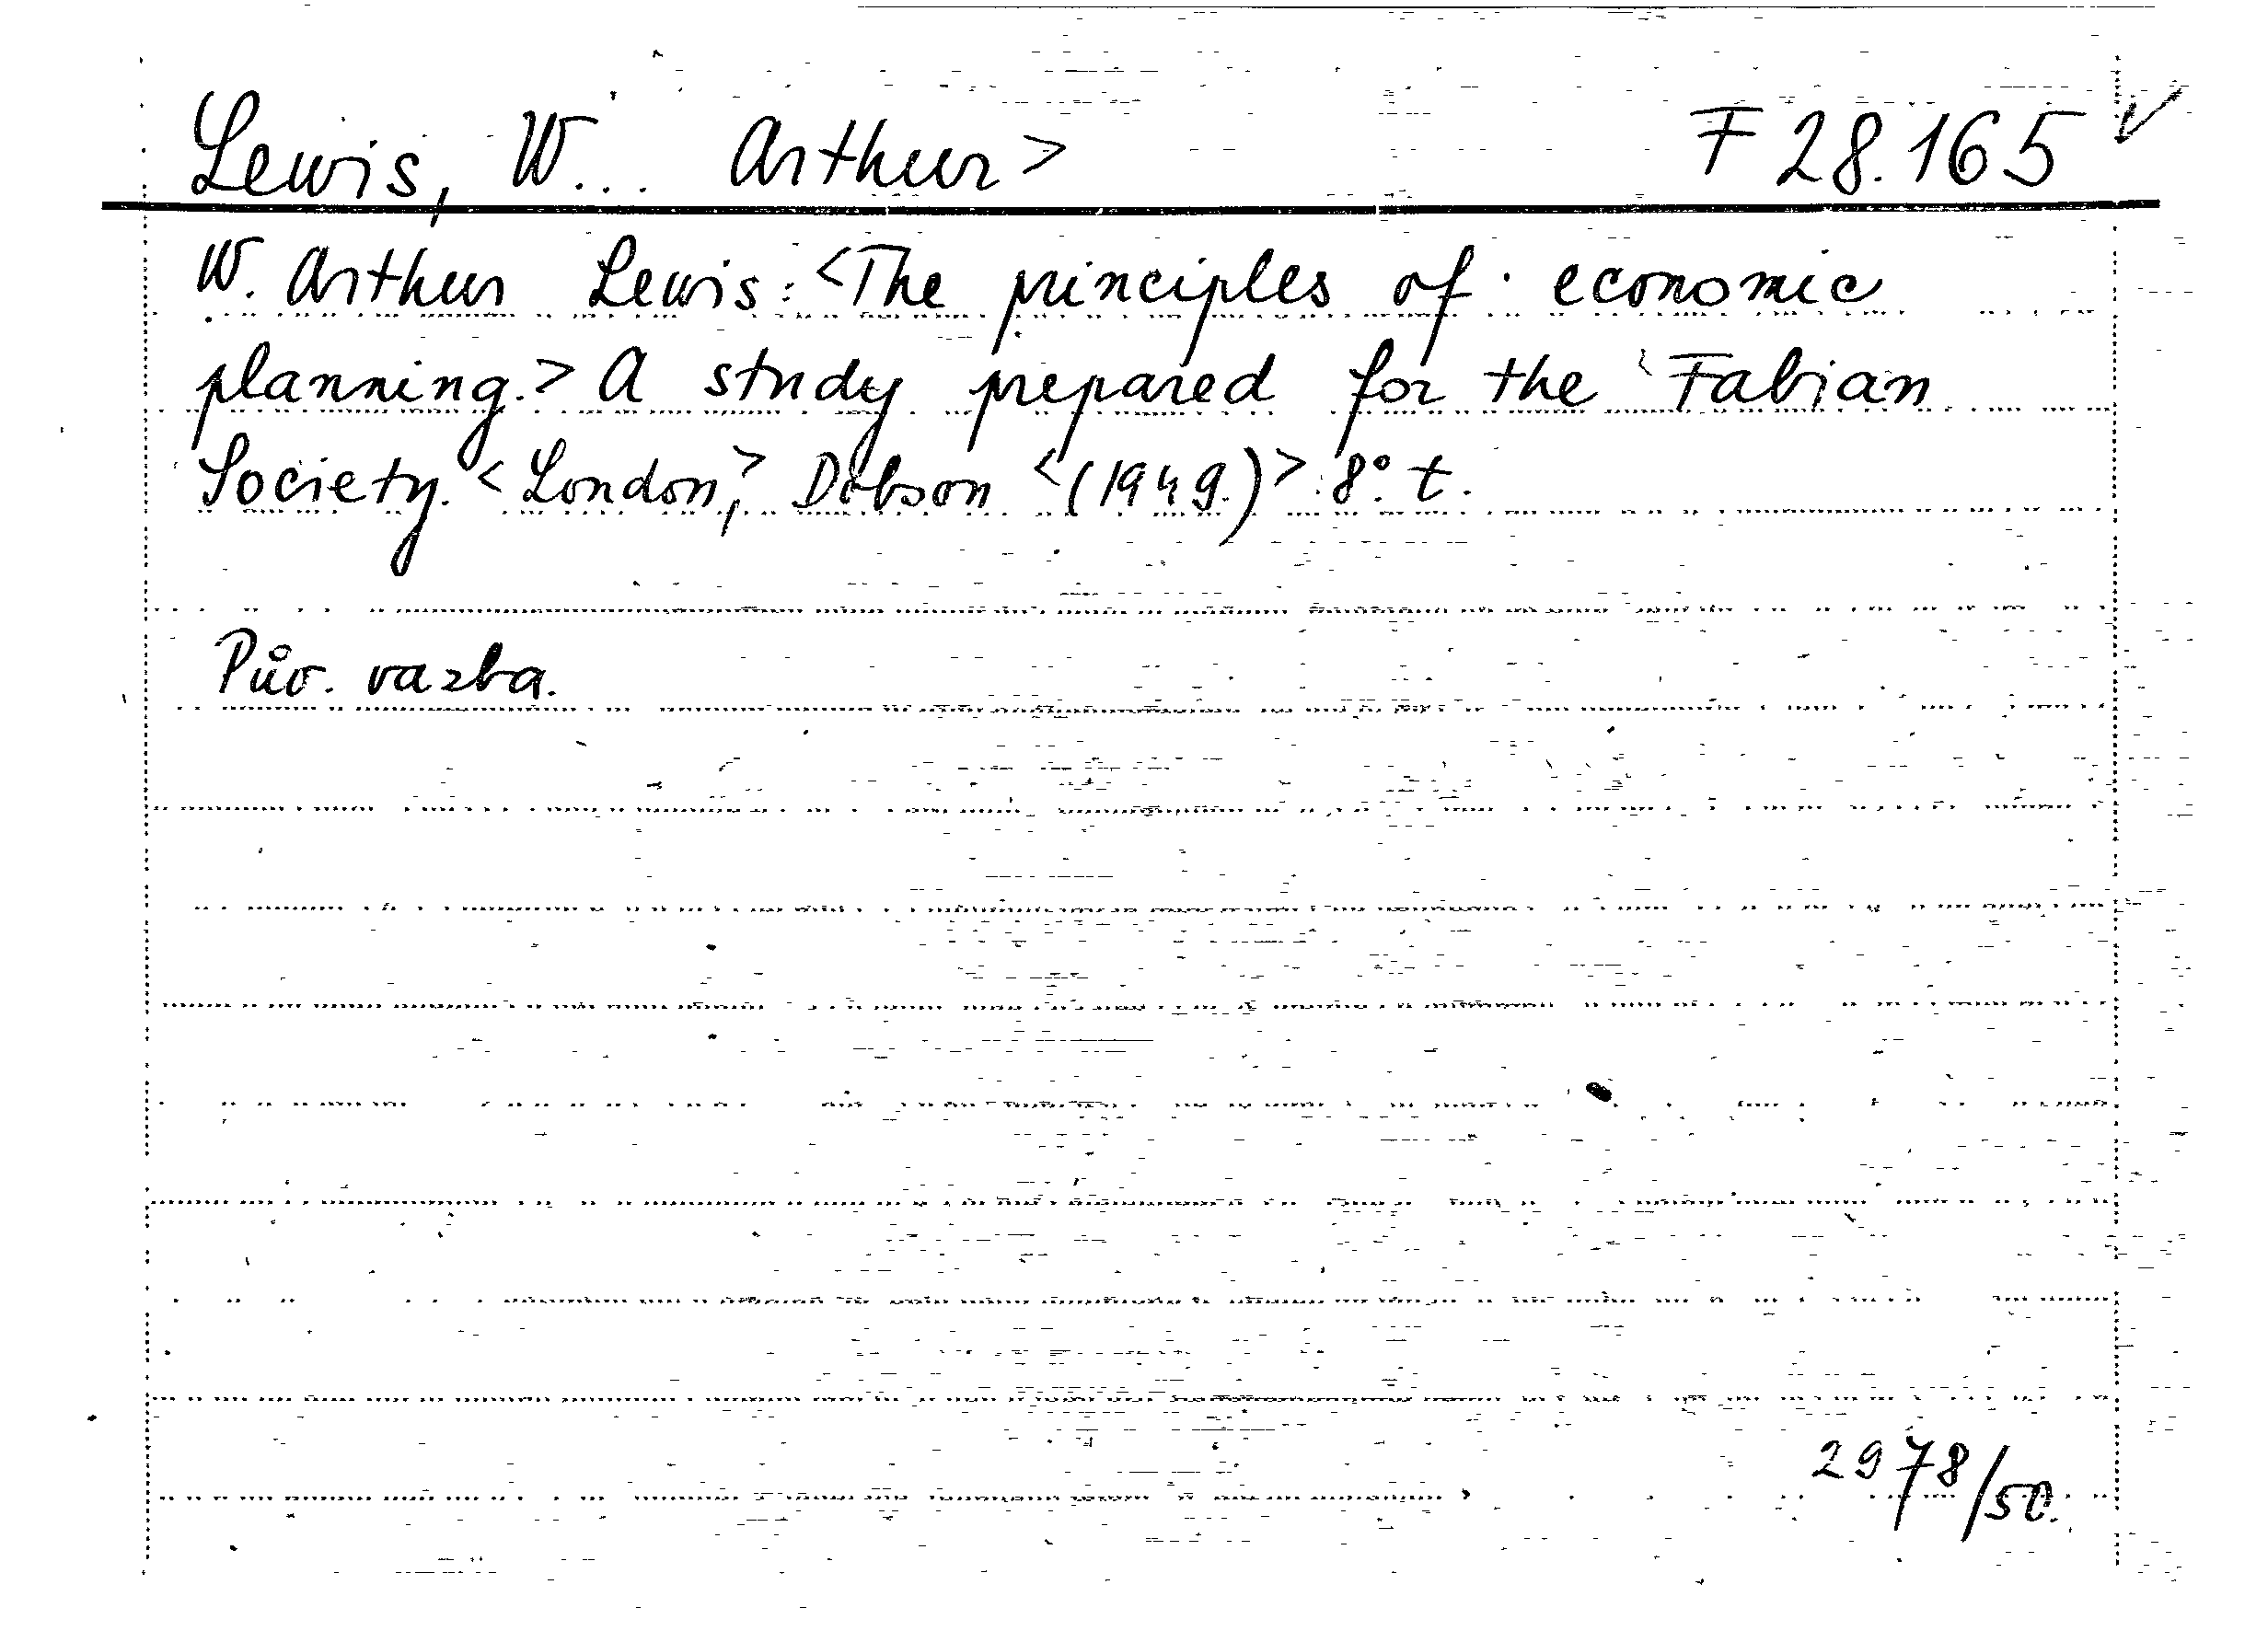 Lewis, W... Arthur> F 28.165 ✓
W. Arthur Lewis: <The principles of economic
planning.> A study prepared for the Fabian
Society. <London,> Dobson <(1949.)> 8°. t.
Pův. vazba.
2978/50.